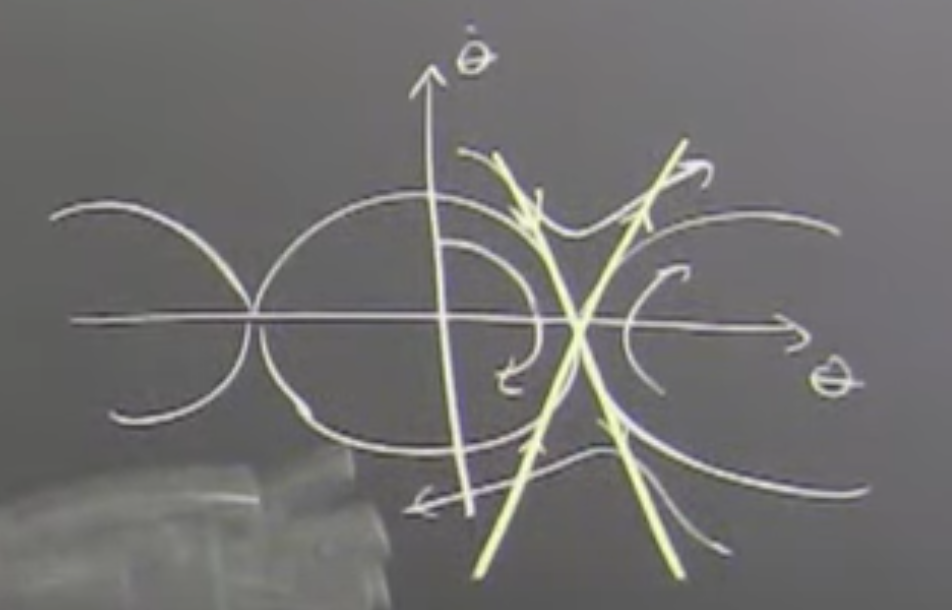 θ̇
θ